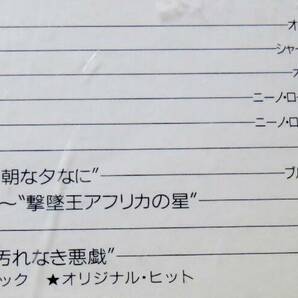 オ
シャー
ニーノ・ロー
ニーノ・ロ
朝な夕なに”
ブル
〜“撃墜王アフリカの星”
汚れなき悪戯”
ック ★オリジナル・ヒット